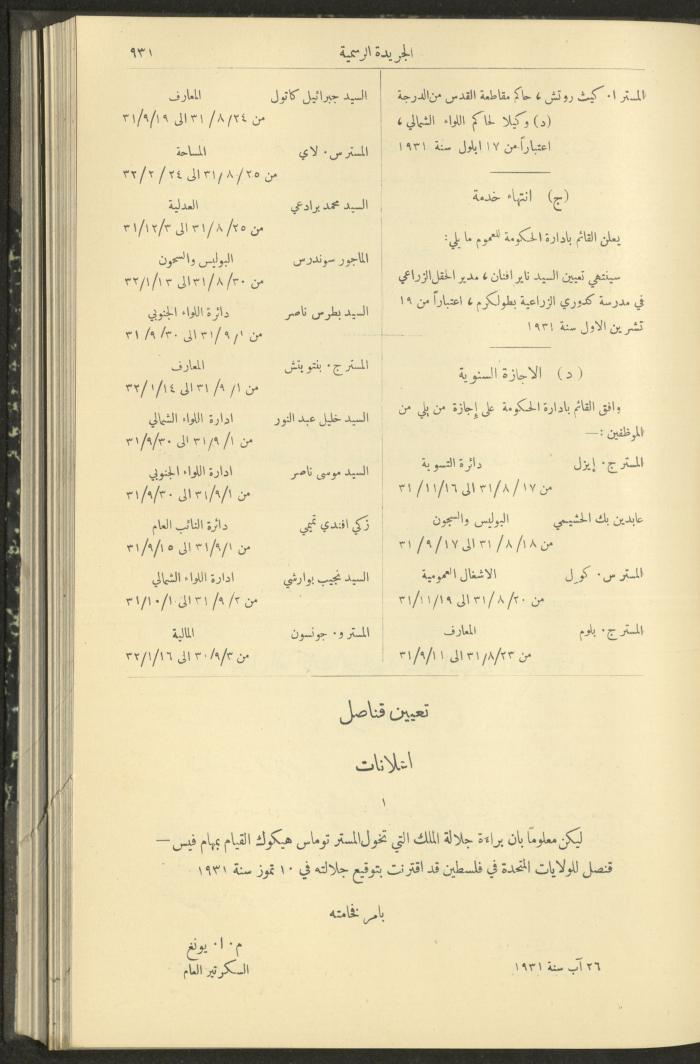 الجريدة الرسمية
٩٣١
المستر ا. كيث روتش ، حاكم مقاطعة القدس من الدرجة
(د) وكيلا لحاكم اللواء الشمالي ،
اعتباراً من ١٧ ايلول سنة ١٩٣١
(ج) انتهاء خدمة
يعلن القائم بادارة الحكومة للعموم ما يلي:
سينتهي تعيين السيد ناير افنان ، مدير الحقل الزراعي
في مدرسة كدوري الزراعية بطولكرم ، اعتباراً من ١٩
تشرين الاول سنة ١٩٣١
(د) الاجازة السنوية
وافق القائم بادارة الحكومة على إجازة من يلي من
الموظفين :—
المستر ج. إيزل دائرة التسوية
من ١٧/٨/٣١ الى ٣١/١١/١٦
عابدين بك الحشيمي البوليس والسجون
من ١٨/٨/٣١ الى ٣١/٩/١٧
المستر س. كول الاشغال العمومية
من ٢٠/٨/٣١ الى ٣١/١١/١٩
المستر ج. بلوم المعارف
من ٢٣/٨/٣١ الى ٣١/٩/١١
السيد جبرائيل كاتول المعارف
من ٢٤/٨/٣١ الى ٣١/٩/١٩
المستر س. لاي المساحة
من ٢٥/٨/٣١ الى ٣٢/٢/٢٤
السيد محمد برادعي العدلية
من ٢٥/٨/٣١ الى ٣١/١٢/٣
الماجور سوندرس البوليس والسجون
من ٣٠/٨/٣١ الى ٣٢/١/١٣
السيد بطرس ناصر دائرة اللواء الجنوبي
من ١/٩/٣١ الى ٣١/٩/٣٠
المستر ج. بنتويتش المعارف
من ١/٩/٣١ الى ٣٢/١/١٤
السيد خليل عبد النور ادارة اللواء الشمالي
من ١/٩/٣١ الى ٣١/٩/٣٠
السيد موسى ناصر ادارة اللواء الجنوبي
من ٣١/٩/١ الى ٣١/٩/٣٠
زكي افندي تميمي دائرة النائب العام
من ٣١/٩/١ الى ٣١/٩/١٥
السيد نجيب بوارشي ادارة اللواء الشمالي
من ٢/٩/٣١ الى ٣١/١٠/١
المستر و. جونسون المالية
من ٣٠/٩/٣ الى ٣٢/١/١٦
تعيين قناصل
اعلانات
١
ليكن معلوماً بان براءة جلالة الملك التي تخول المستر توماس هيكوك القيام بمهام فيس —
قنصل للولايات المتحدة في فلسطين قد اقترنت بتوقيع جلالته في ١٠ تموز سنة ١٩٣١
بامر فخامته
م. ا. يونغ
٢٦ آب سنة ١٩٣١ السكرتير العام